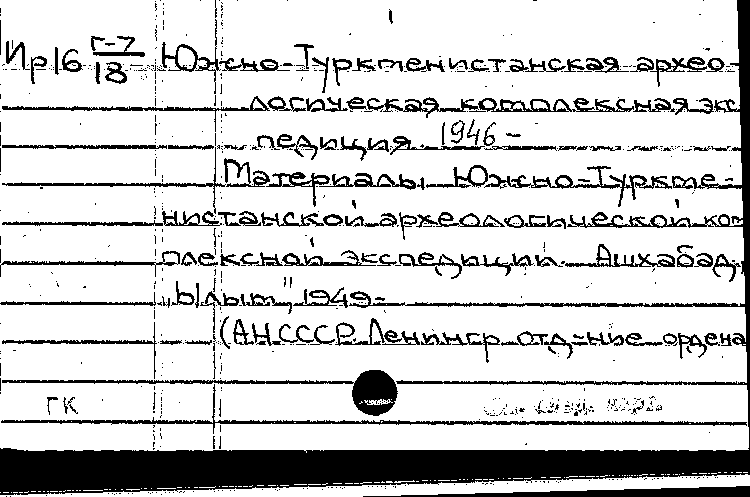 Ир16 Г-7/18 Южно-Туркменистанская архео-
логическая комплексная экс
педиция. 1946 -
Материалы Южно-Туркме-
нистанской археологической ком
плексной экспедиции. Ашхабад,
„Ылым", 1949-
(АН СССР. Ленингр. отд-ние ордена
ГК
См. след. карт.